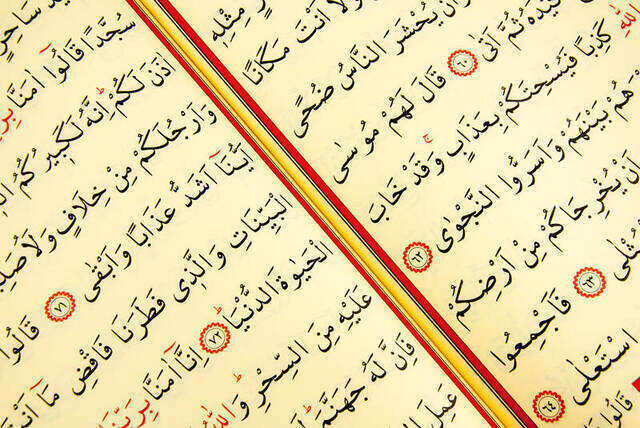 مِثْلِهِ
وَلَا اَنْتَ مَكَانًا
اَنْ يُحْشَرَ النَّاسُ ضُحًى
كَيْدَهُ ثُمَّ اَتٰى ﴿٦٠﴾ قَالَ لَهُمْ مُوسٰى
اللّٰهِ كَذِبًا فَيُسْحِتَكُمْ بِعَذَابٍ وَقَدْ خَابَ
هُمْ بَيْنَهُمْ وَاَسَرُّوا النَّجْوٰى ﴿٦٢﴾
اَنْ يُخْرِجَاكُمْ مِنْ اَرْضِكُمْ
مُثْلٰى ﴿٦٣﴾ فَاَجْمِعُوا
اسْتَعْلٰى ﴿٦٤﴾
قَالُوا
سَاحِرٍ
سُجَّدًا قَالُوا اٰمَنَّا
اٰذَنَ لَكُمْ اِنَّهُ لَكَبِيرُكُمُ
وَاَرْجُلَكُمْ مِنْ خِلَافٍ
اَيُّنَا اَشَدُّ عَذَابًا وَاَبْقٰى ﴿٧١﴾ قَالُوا
الْبَيِّنَاتِ وَالَّذِى فَطَرَنَا فَاقْضِ مَا اَنْتَ
الْحَيٰوةَ الدُّنْيَا ﴿٧٢﴾ اِنَّا اٰمَنَّا بِرَبِّنَا
عَلَيْهِ مِنَ السِّحْرِ وَاللّٰهُ
فَاِنَّ لَهُ جَهَنَّمَ
عَمِلَ